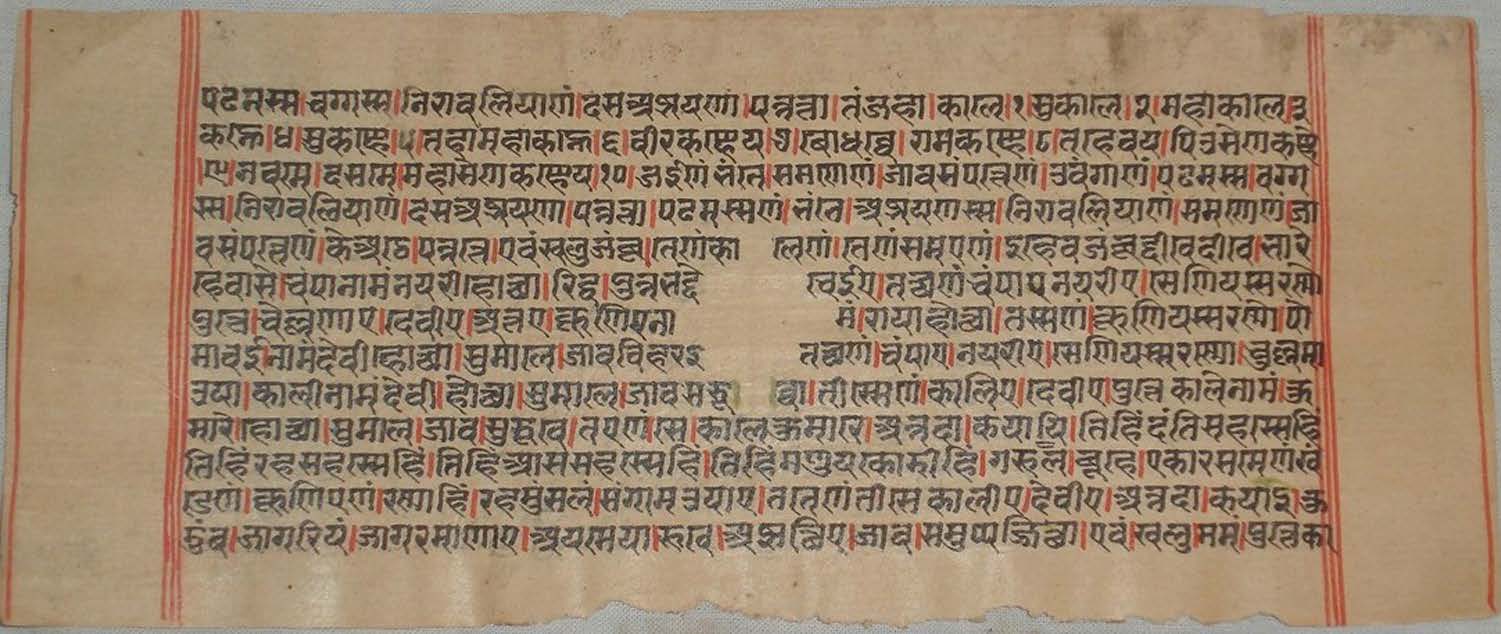 पढमस्स।वग्गस्स।निरावलियाणं।दसअज्झयणा।पन्नत्ता।तंजहा।काले।१सुकाले।२।महाकाले।३
कण्हे।४।सुकण्हे।५।तहामहाकण्हे।६।वीरकण्हेय।७।बोधव्वे।रामकण्हे।८।तहेवय।पिउसेणकण्हे
।९।नवमे।दसमे।महासेणकण्हेय।१०।जइणंभंते।समणेणं।जावसंपत्तेणं।उवंगाणं।पढमस्स।वग्ग
स्स।निरावलियाणं।दसअज्झयणा।पन्नत्ता।पढमस्सणं।भंते।अज्झयणस्स।निरावलियाणं।समणेणं।जा
वसंपत्तेणं।केअट्ठे।पन्नत्ते।एवंखलुजंबू।तेणंका लेणं।तेणंसमएणं।इहेवजंबुद्दीवेदीवे।भार
हेवासे।चंपानामंनयरी।होत्था।रिद्ध।पुन्नभद्दे चेइए।तत्थणंचंपाएनयरीए।सेणियस्सरण्णो
पुत्ते।चेल्लणाए।देवीए।अत्तए।कूणिएना मंराया।होत्था।तस्सणं।कूणियस्सरण्णो।पउ
मावईनामंदेवी।होत्था।सुमाल।जावविहरइ तत्थणं।चंपाए।नयरीए।सेणियस्सरण्णो।चुल्लमा
उया।कालीनामंदेवी।होत्था।सुमाल।जावसुरू वा।तीसेणं।कालीए।देवीए।पुत्तेकालेनामंकु
मारे।होत्था।सुमाल।जाव।सुरूवे।तएणंसे।कालेकुमारे।अन्नदा।कयाइ।तिहिंदंतिसहस्सेहिं
तिहिंरहसहस्सेहिं।तिहिंआससहस्सेहिं।तिहिंमणुयकोडीहिं।गरुलवूहे।एकारसमेणंखं
डेणं।कूणिएणं।रण्णासद्धिं।रहमुसलं।संगामंउयाए।ततेणंतीसेकालीए।देवीए।अन्नदा।कयाइकु
डुंब।जागरियं।जागरमाणीए।अयमेया।रूवे।अज्झत्थिए।जाव।समुप्पज्जित्था।एवंखलुममंपुत्तेका